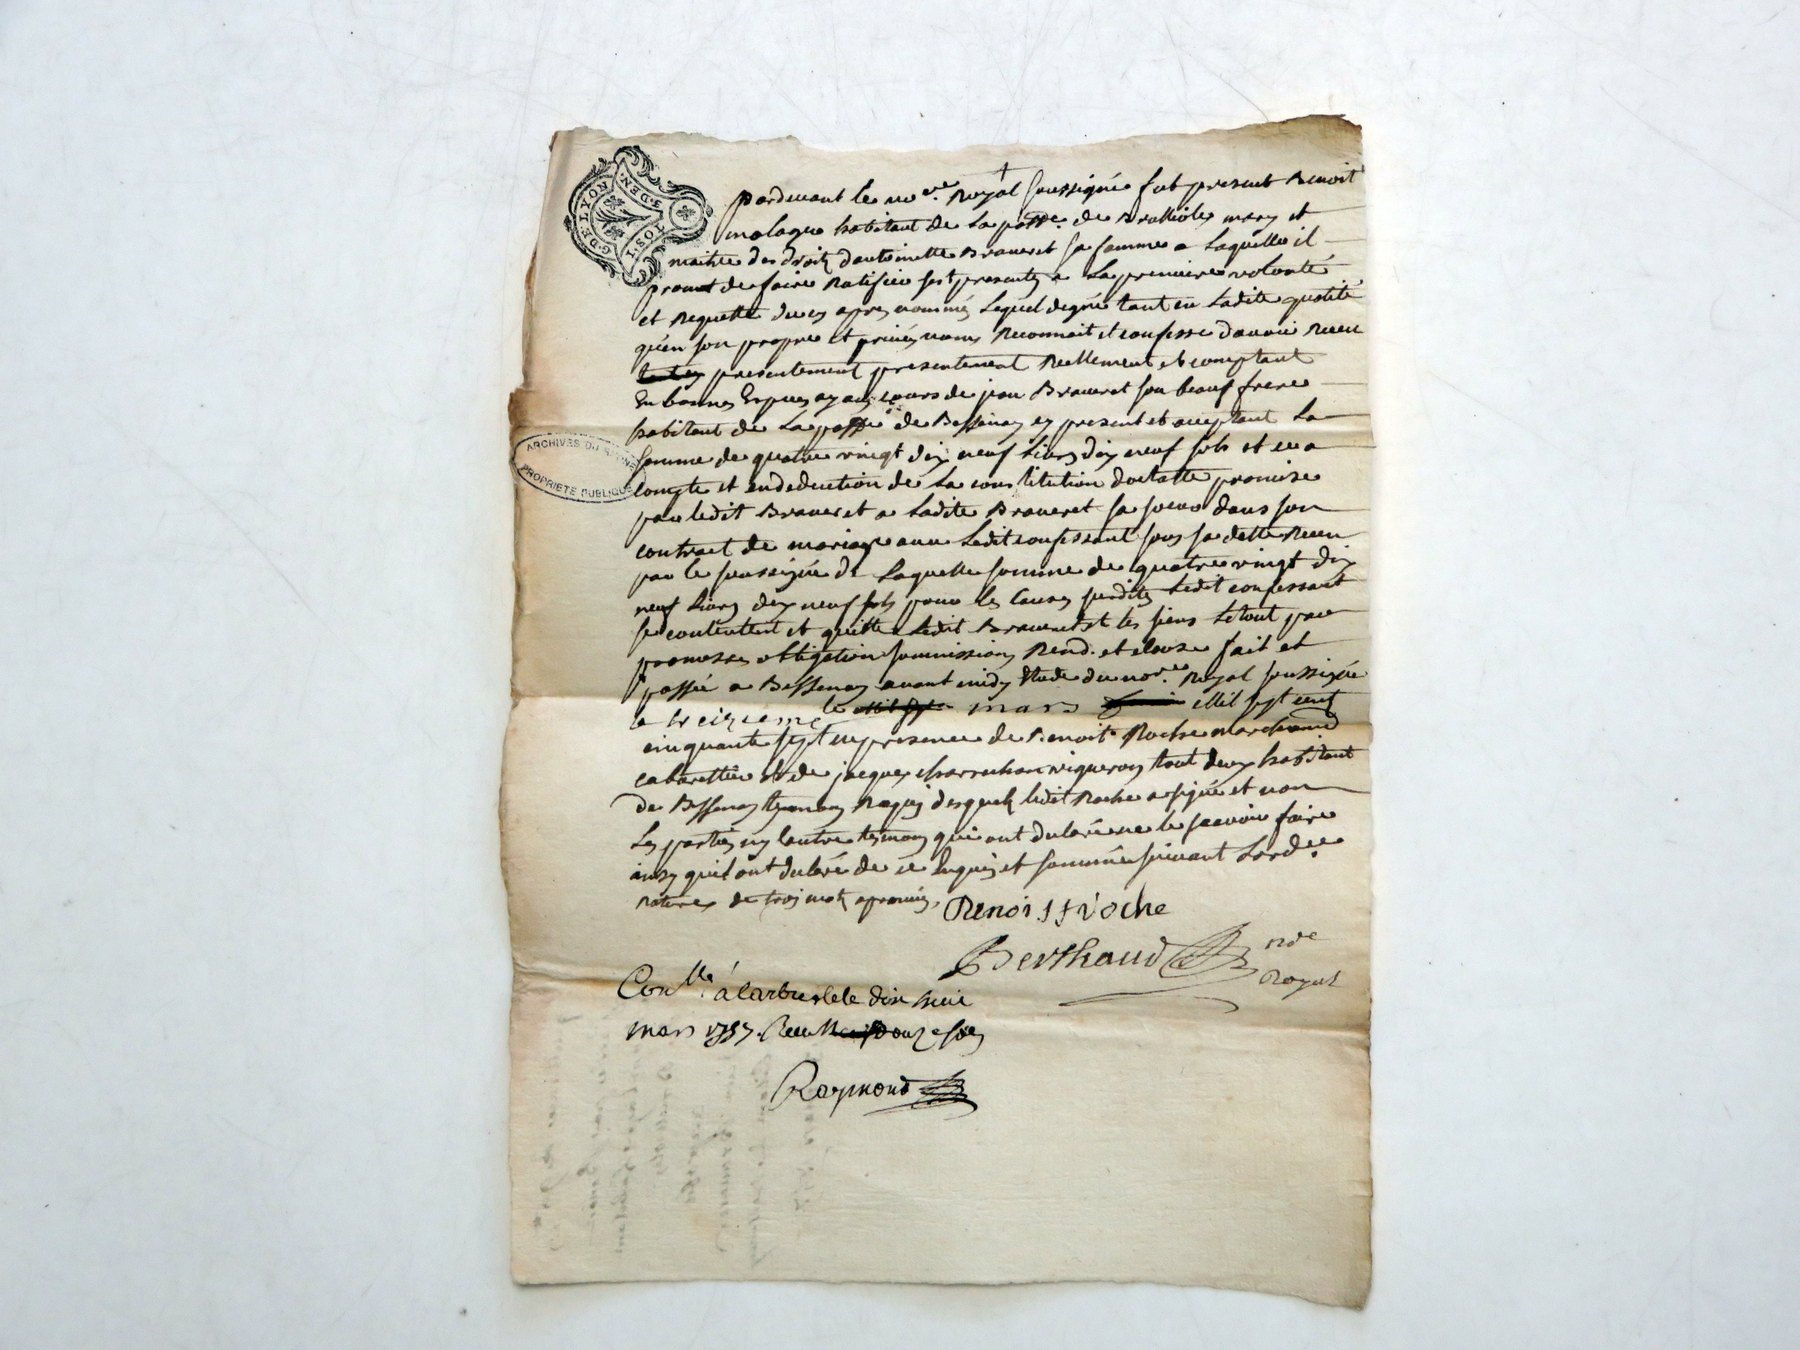 G. DE LYON
TOS. 1 S. DEN.
pardevant le no.re Royal soussigné fut present Benoit
molague habitant de La passe. de Brullioles mary et
maitre des droitz dantoinette Braveret sa femme a Laquelle il
promet de faire Ratifier ses presentes a La premiere volonté
et Requette du cy apres nommés Lequel de gré tant en Ladite qualité
quen son propre et privés noms Reconnoit et confesse davoir Receu
presentement presentement Reellement et comptant
En bonnes Espures ayant cours de jean Braveret son beauf frere
habitant de La passe de Bessenay cy present et acceptant La
somme de quatre vingt dix neuf Livres dix neuf sols et ce a
compte et en deduction de La constitution dotalle promise
par ledit Braveret a Ladite Braveret sa soeur dans son
contract de mariage avec Ledit confessant sous sa datte Receu
par le soussigné de Laquelle somme de quatre vingt dix
neuf Livres dix neuf sols pour les Causes susdites Ledit confessant
se contentent et quitte Ledit Braveret et les siens Le tout par
promesses obligation soumissions Rend. et clause fait et
passé a Bessenay avant midy Etude du no.re Royal soussigné
le treizieme mars Mil sept cent
cinquante sept en presence de Benoit Roche marchand
cabarettier et de jacques charrechon vigneron tout deux habitant
de Bessenay temoins Requis desquels ledit Roche a signé et non
Les parties ny Lautre temoin qui ont declaré ne le scavoir faire
ainsy quil ont declaré de ce Enquis et sommés suivant Lord.ce
Ratures de trois mots aprouvés,
Benoist Roche
Berthaud nore
Royal
Con.llé à Larbresle le dix huit
mars 1757. Receu douze sols
Raymond
ARCHIVES DU RHÔNE
PROPRIÉTÉ PUBLIQUE